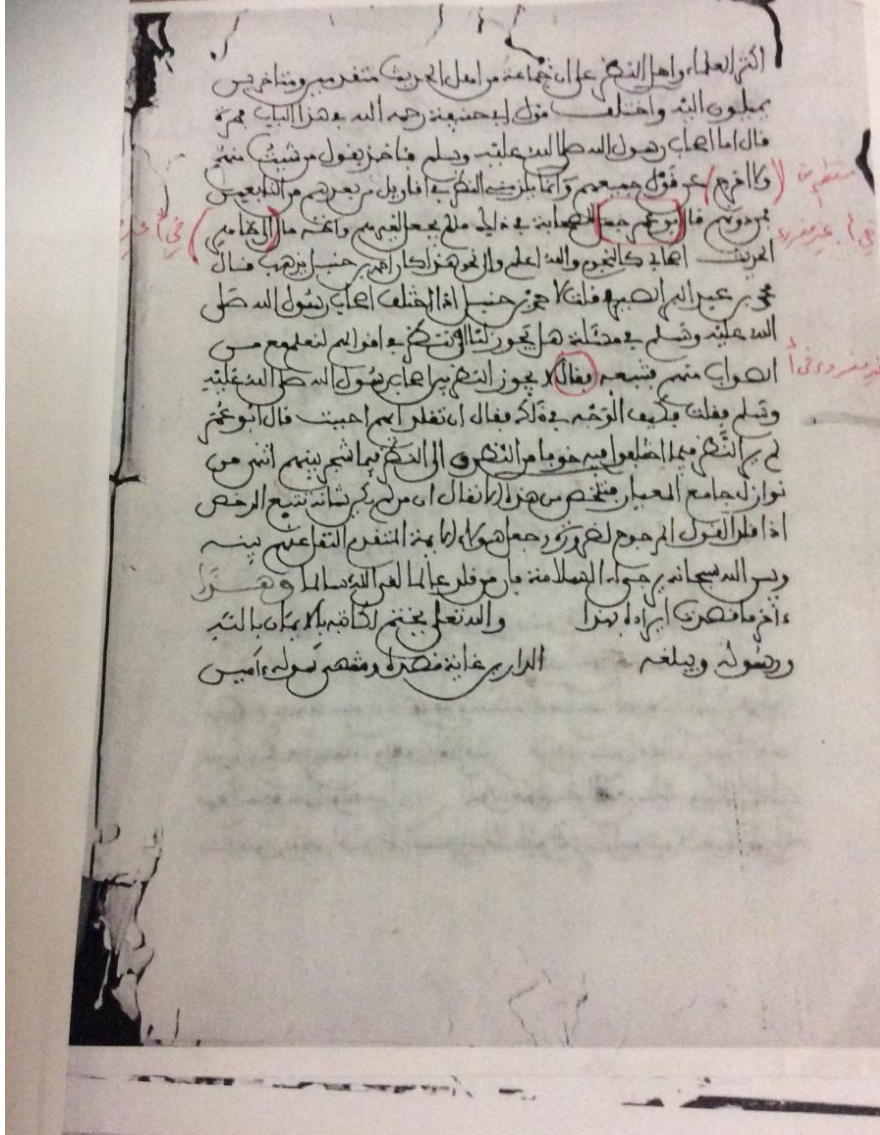 أكثر العلماء وأهل النظر على أن جماعة من أهل الحديث متقدمين ومتأخرين
يميلون إليه واختلف قول أبي حنيفة رحمه الله في هذا الباب فمرة
قال أما أصحاب رسول الله صلى الله عليه وسلم فآخذ بقول من شئت منهم
ولا أخرج عن قول جميعهم وإنما يلزمني النظر في أقاويل من بعدهم من التابعين
فمن دونهم قال أبو عمر جعل للصحابة في ذلك ما لم يجعل لغيرهم وأظنه مال إلى ظاهر
الحديث أصحابي كالنجوم والله أعلم وإلى نحو هذا كان أحمد بن حنبل يذهب قال
محمد بن عبد الرحمن الصيرفي قلت لأحمد بن حنبل إذا اختلف أصحاب رسول الله صلى
الله عليه وسلم في مسئلة هل يجوز لنا أن ننظر في أقوالهم لنعلم مع من
الصواب منهم فنتبعه فقال لا يجوز النظر بين أصحاب رسول الله صلى الله عليه
وسلم فقلت فكيف الوجه في ذلك فقال أن تقلد أيهم أحببت قال أبو عمر
لم ير النظر فيما اختلفوا فيه خوفا من التطرق إلى النظر فيما شجر بينهم انتهى من
نوازل جامع المعيار فتلخص من هذه الأنقال أن من لم يكن شأنه تتبع الرخص
إذا قلد القول المرجوح لضرورة وجعل هؤلاء الأيمة المتقدم النقل عنهم بينه
وبين الله سبحانه يرجى له السلامة فإن من قلد عالما لقي الله سالما وهذا
ءاخر ما قصدت إيراده بهذا والله تعلى يختم لكاتبه بالإيمان بالله
ورسوله ويبلغه الدارين غاية قصده ومنتهى سوله ءامين